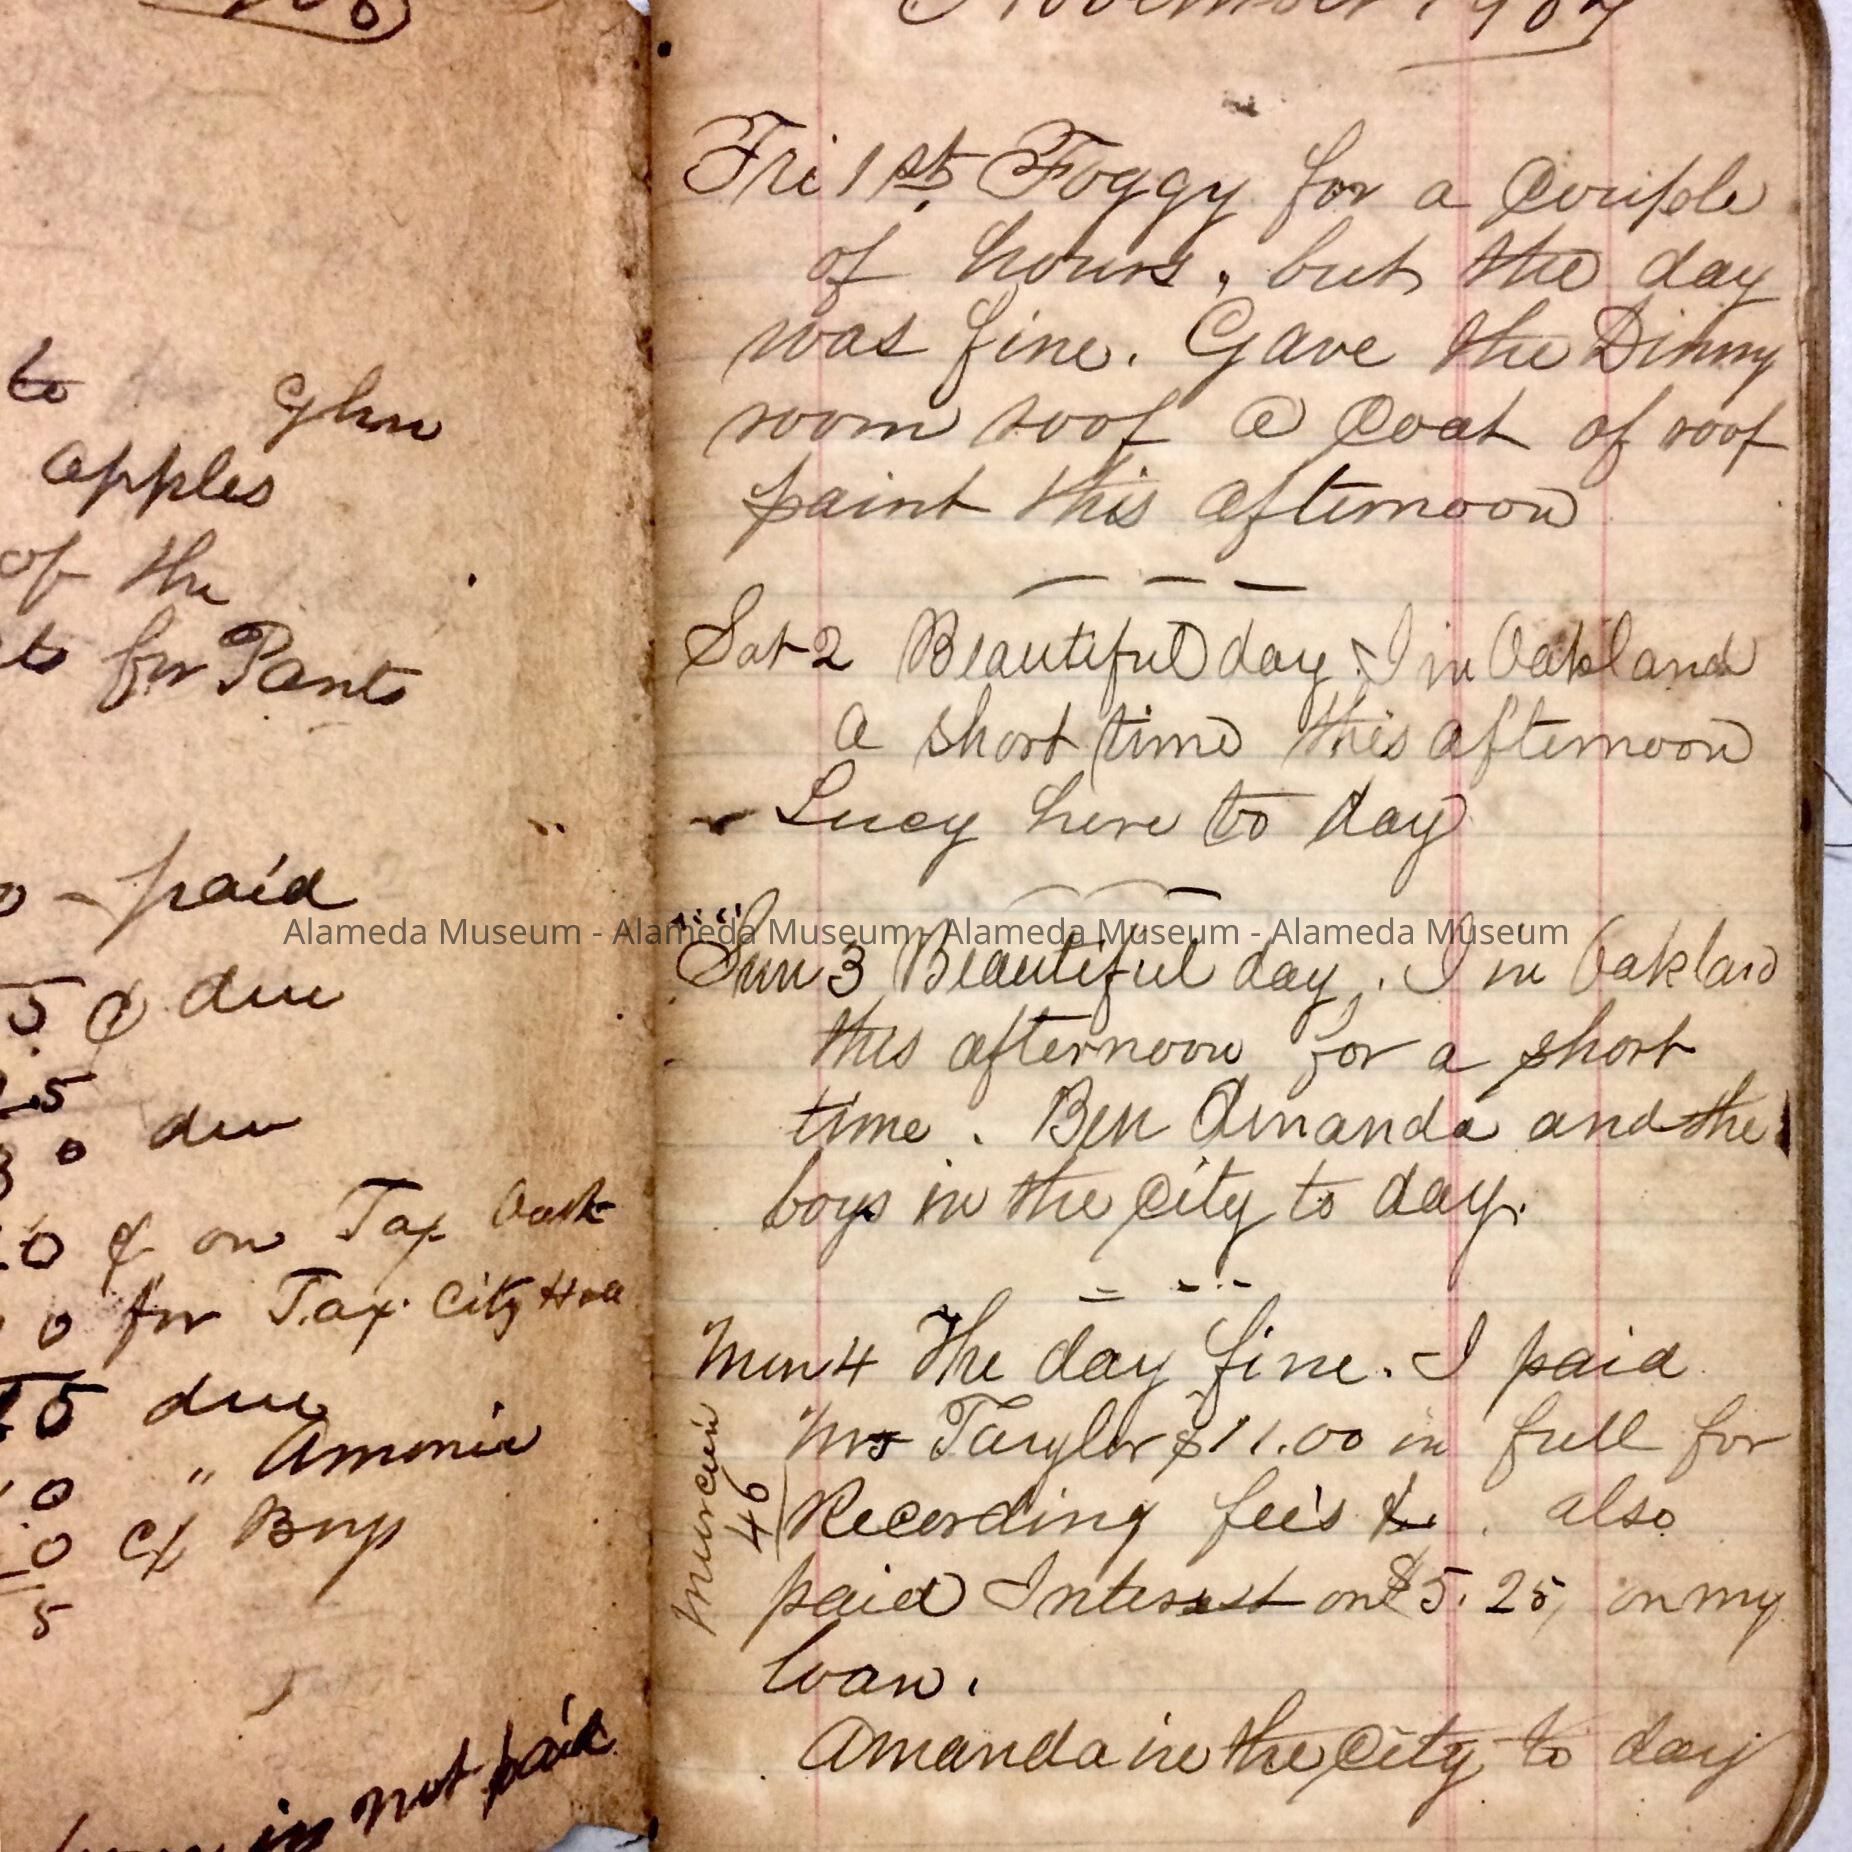 to
apples
of the
for Pants
paid
5 ¢ due
5
0 due
0 ¢ on Tax Oak
0 for Tax City Hall
5 due
0 " Amonia
0 cf Boys
5
in not paid
November 1907
Fri 1st Foggy for a Couple
of hours, but the day
was fine. Gave the Dinning
room roof a Coat of roof
paint this afternoon
Sat 2 Beautiful day. I in Oakland
a short time this afternoon
Lucy here to day
Alameda Museum - Alameda Museum - Alameda Museum - Alameda Museum
Sun 3 Beautiful day. I in Oakland
this afternoon for a short
time. Ben Amanda and the
boys in the City to day.
Mon 4 The day fine. I paid
Mrs Tayler $11.00 in full for
46 Recording fee's &. also
paid Interest on $5.25, on my
loan.
Amanda in the City to day